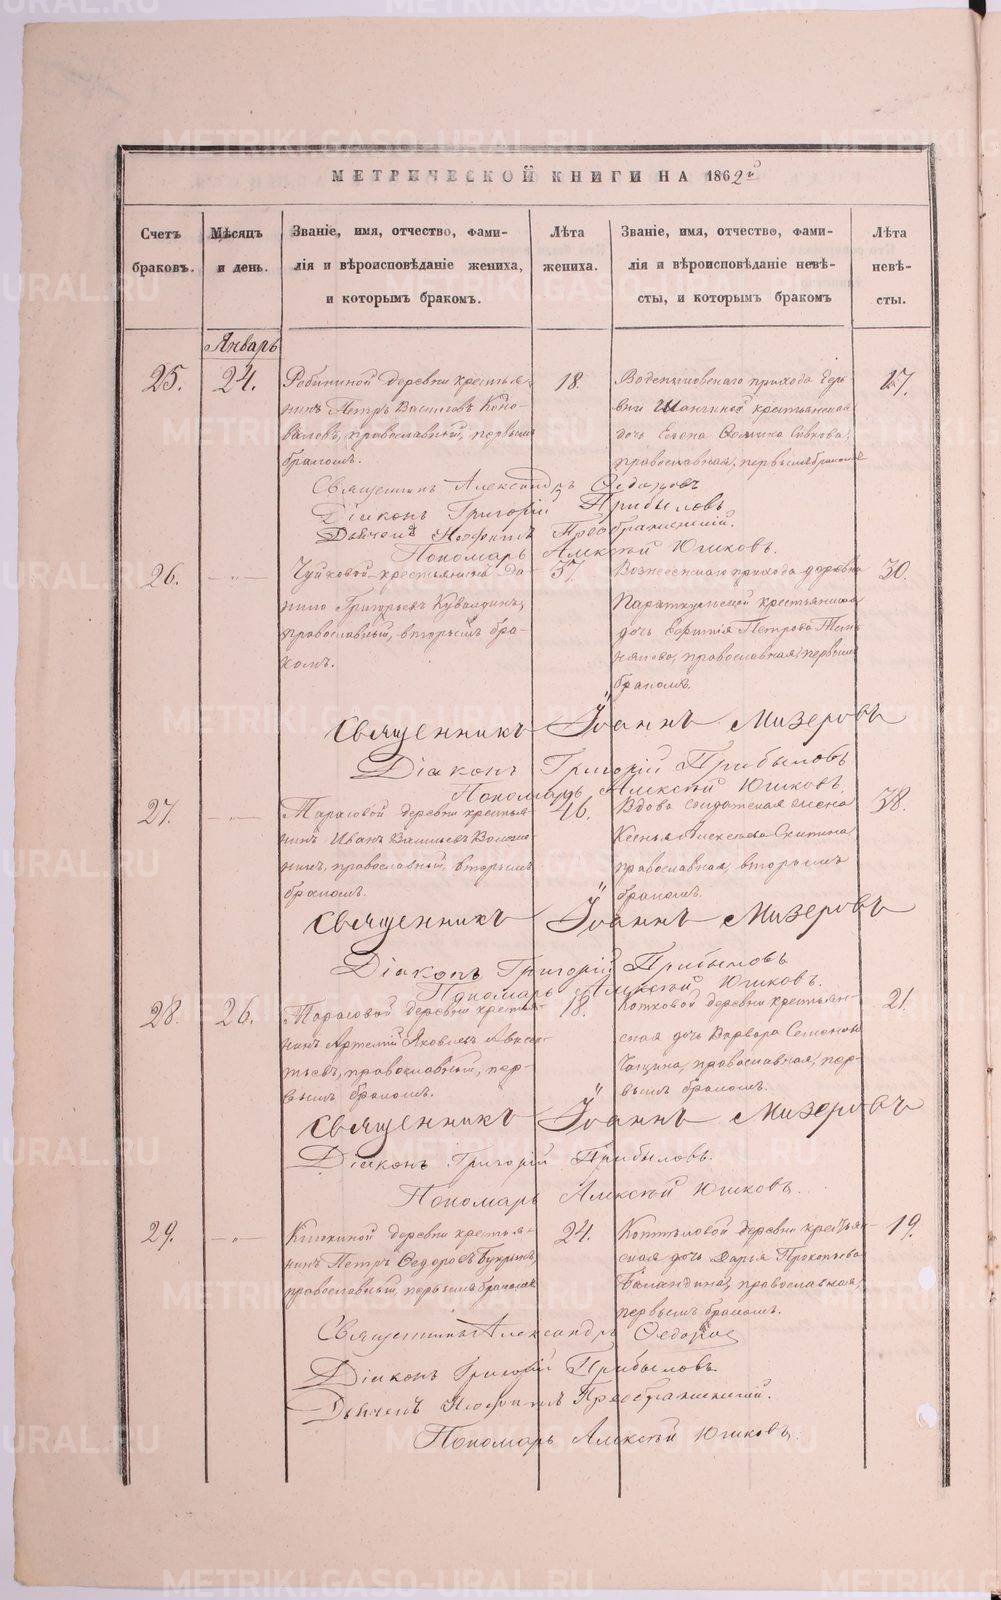 МЕТРИЧЕСКОЙ КНИГИ НА 1862й
Счетъ браковъ.
Мѣсяцъ и день.
Званіе, имя, отчество, фами-
лія и вѣроисповѣданіе жениха,
и которымъ бракомъ.
Лѣта жениха.
Званіе, имя, отчество, фами-
лія и вѣроисповѣданіе невѣ-
сты, и которымъ бракомъ
Лѣта невѣ-
сты.
Январь
25.
24.
деревни крестья-
нинъ Петръ Васильевъ Коно-
валовъ, православный, первымъ
бракомъ.
18.
прихода дере
вни крестьянская
дочь Елена
православная, первымъ бракомъ
17.
Священникъ Александръ
Діаконъ Григорій Прибыловъ
Дьячекъ Преображенскій.
Пономарь Алексѣй Юшковъ.
26.
-"-
крестьянинъ Да-
нило Григорьевъ Кувалдинъ,
православный, вторымъ бра-
комъ.
37.
Вознесенскаго прихода деревни
крестьянская
дочь Петрова
православная, первымъ
бракомъ.
30.
Священникъ Іоаннъ Мизеровъ
Діаконъ Григорій Прибыловъ
Пономарь Алексѣй Юшковъ.
27.
-"-
Тарасовой деревни крестья
нинъ Иванъ Васильевъ
православный, вторымъ
бракомъ.
46.
Вдова солдатская жена
Ксенья Алексѣева
православная, вторымъ
бракомъ.
38.
Священникъ Іоаннъ Мизеровъ
Діаконъ Григорій Прибыловъ
Пономарь Алексѣй Юшковъ.
28.
26.
Тарасовой деревни крестья-
нинъ Артемій Яковлевъ Авксен-
тьевъ, православный, пер-
вымъ бракомъ.
18.
деревни крестьян-
ская дочь Варвара Семенова
православная, пер-
вымъ бракомъ.
21.
Священникъ Іоаннъ Мизеровъ
Діаконъ Григорій Прибыловъ.
Пономарь Алексѣй Юшковъ.
29.
-"-
деревни крестья-
нинъ Петръ Ѳедоровъ
православный, первымъ бракомъ
24.
Коптѣловой деревни крестьян
ская дочь Дарья Прокопьева
Баландина, православная,
первымъ бракомъ.
19.
Священникъ Александръ
Діаконъ Григорій Прибыловъ.
Дьячекъ Преображенскій.
Пономарь Алексѣй Юшковъ.
METRIKI.GASO-URAL.RU